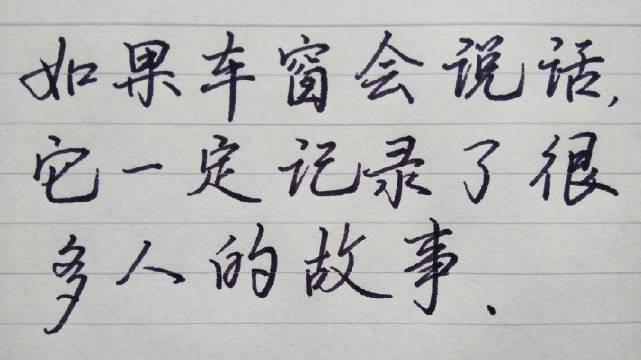 如果车窗会说话,
它一定记录了很
多人的故事、